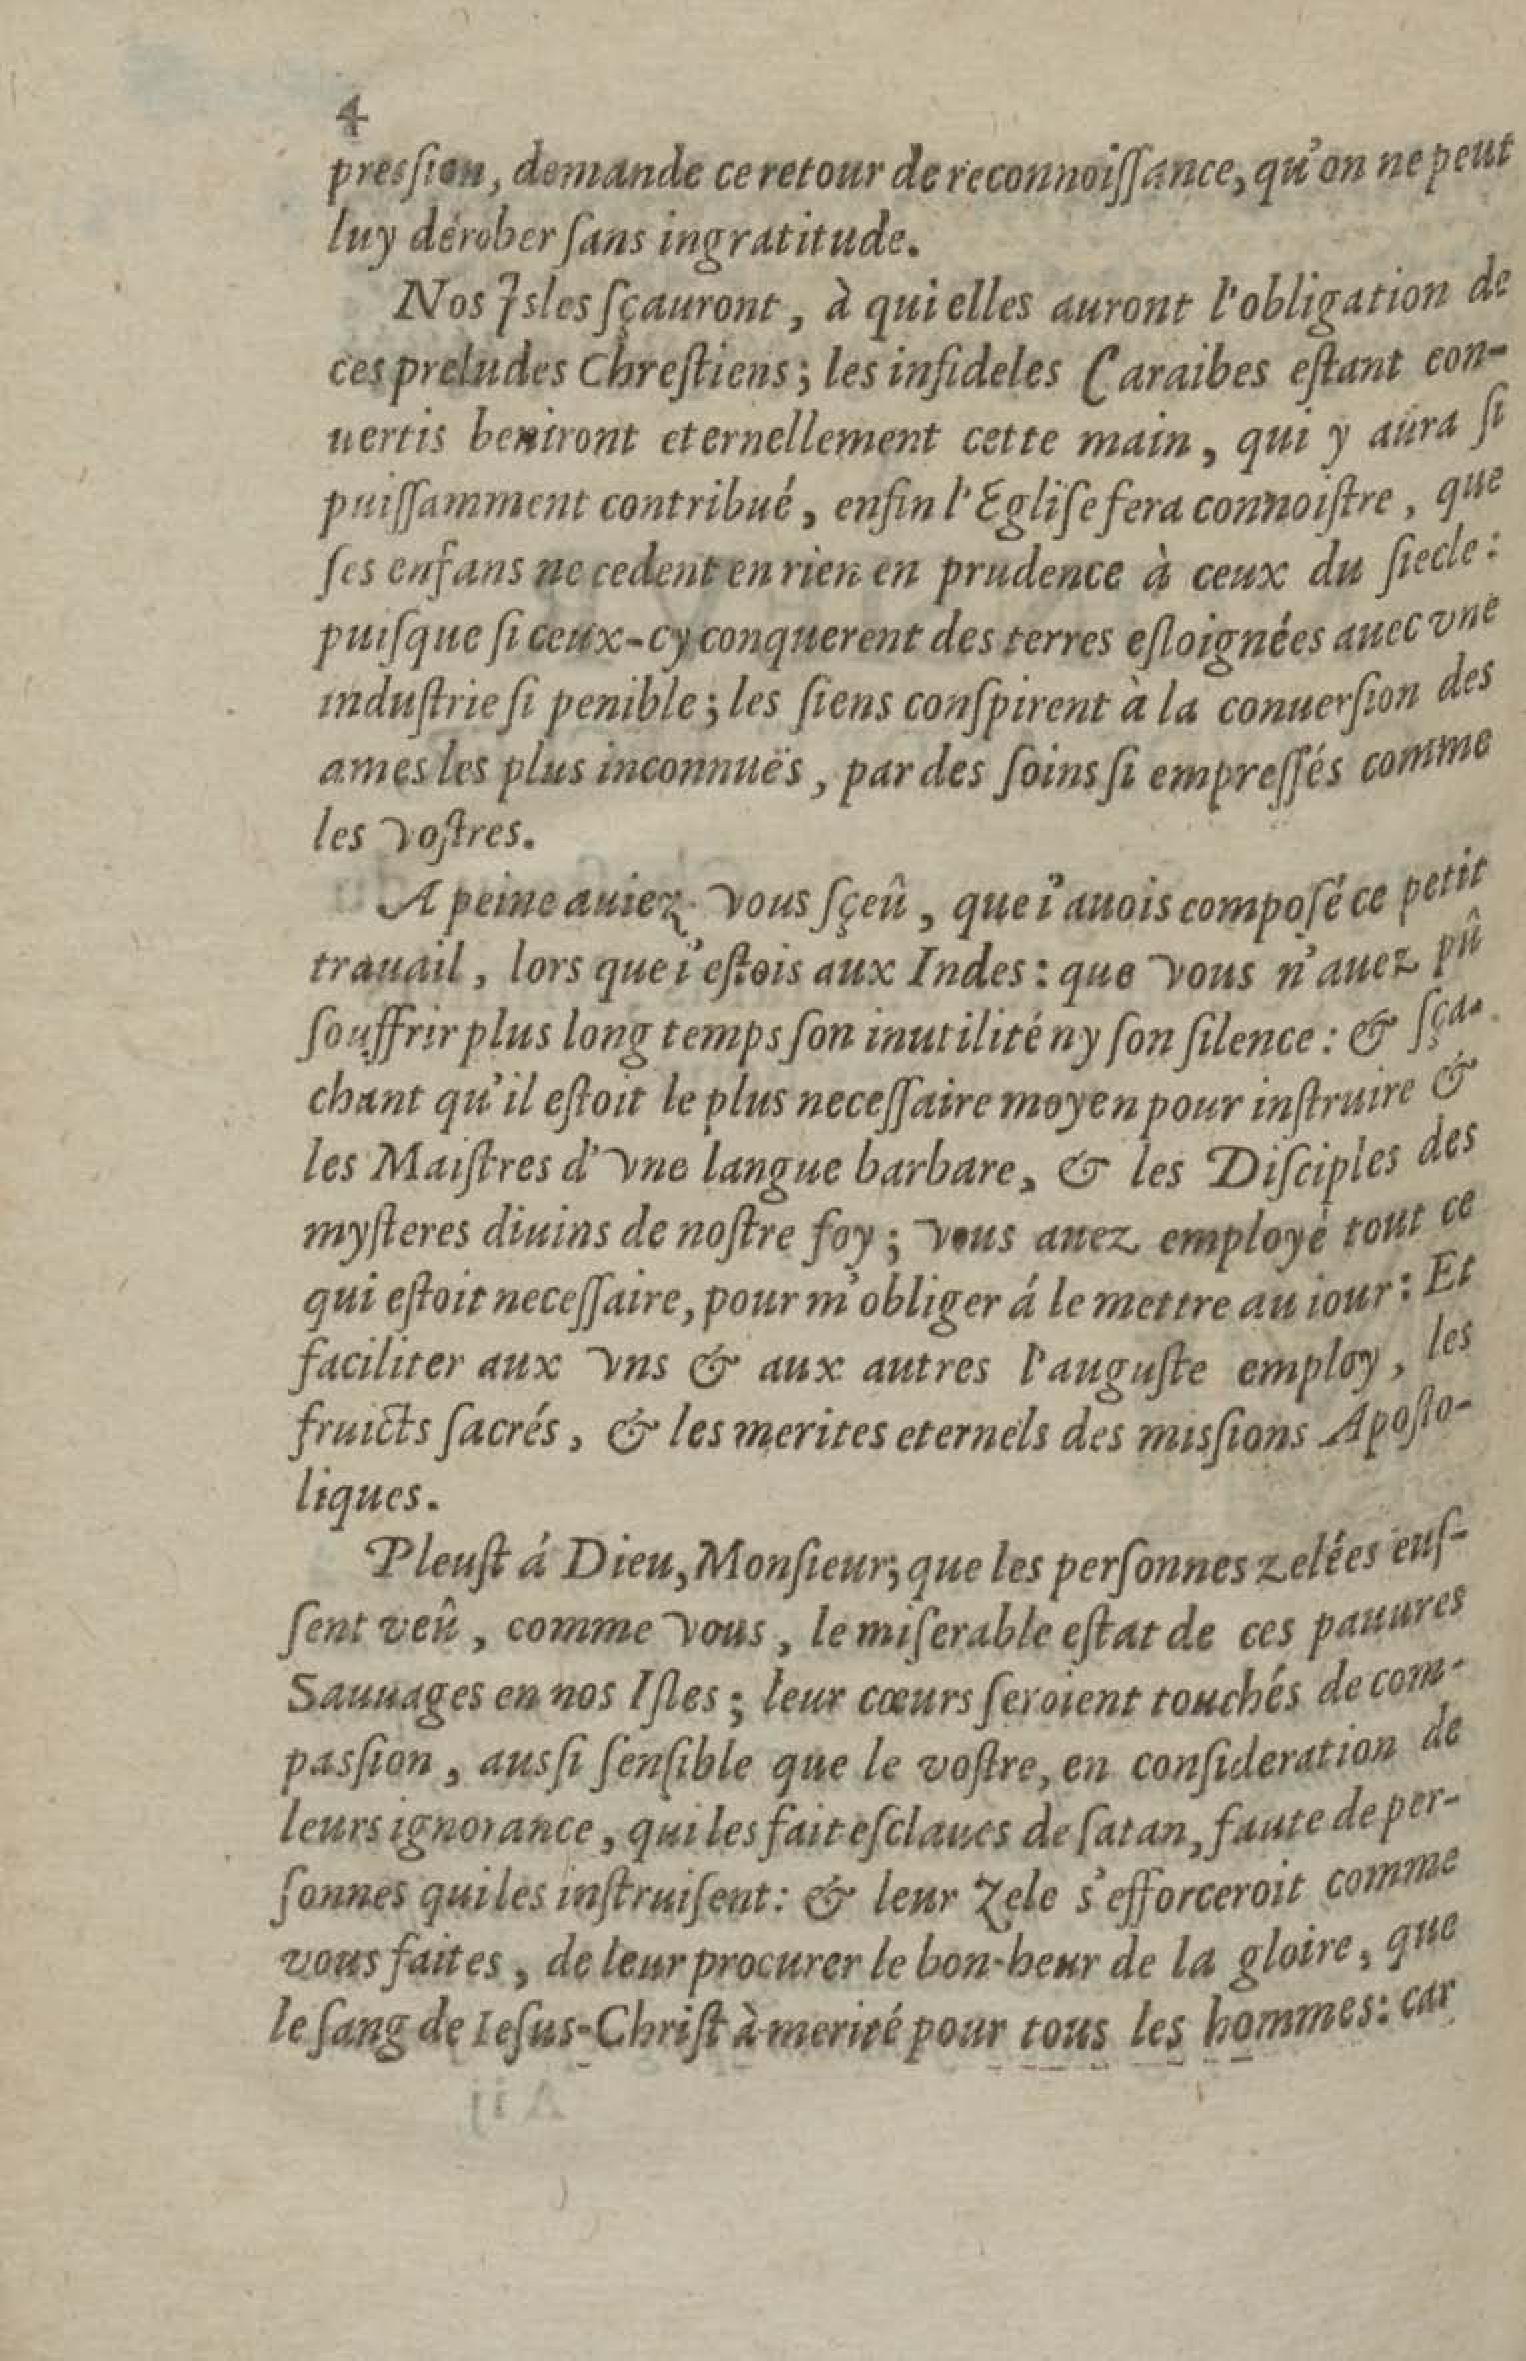 4
presſion, demande ce retour de reconnoiſſance, qu'on ne peut
luy dérober ſans ingratitude.
Nos Isles ſçauront, à qui elles auront l'obligation de
ces preludes Chreſtiens; les infideles Caraibes eſtant con-
uertis beniront eternellement cette main, qui y aura ſi
puiſſamment contribué, enfin l'Egliſe fera connoiſtre, que
ſes enfans ne cedent en rien en prudence à ceux du ſiecle:
puiſque ſi ceux-cy conquerent des terres eſloignées auec vne
induſtrie ſi penible; les ſiens conſpirent à la conuerſion des
ames les plus inconnuës, par des ſoins ſi empreſſés comme
les voſtres.
A peine auiez-vous ſçeû, que i'auois compoſé ce petit
trauail, lors que i'eſtois aux Indes: que vous n'auez pû
ſouffrir plus long temps ſon inutilité ny ſon ſilence: & ſça-
chant qu'il eſtoit le plus neceſſaire moyen pour inſtruire &
les Maiſtres d'vne langue barbare, & les Diſciples des
myſteres diuins de noſtre foy; vous auez employé tout ce
qui eſtoit neceſſaire, pour m'obliger á le mettre au iour: Et
faciliter aux vns & aux autres l'auguſte employ, les
fruicts ſacrés, & les merites eternels des misſions Apoſto-
liques.
Pleuſt á Dieu, Monſieur; que les perſonnes zelées euſ-
ſent veû, comme vous, le miſerable eſtat de ces pauures
Sauuages en nos Iſles; leur cœurs ſeroient touchés de com-
pasſion, ausſi ſenſible que le voſtre, en conſideration de
leurs ignorance, qui les fait eſclaues de ſatan, faute de per-
ſonnes qui les inſtruiſent: & leur zele s'efforceroit comme
vous faites, de leur procurer le bon-heur de la gloire, que
le ſang de Ieſus-Chriſt à merité pour tous les hommes: car